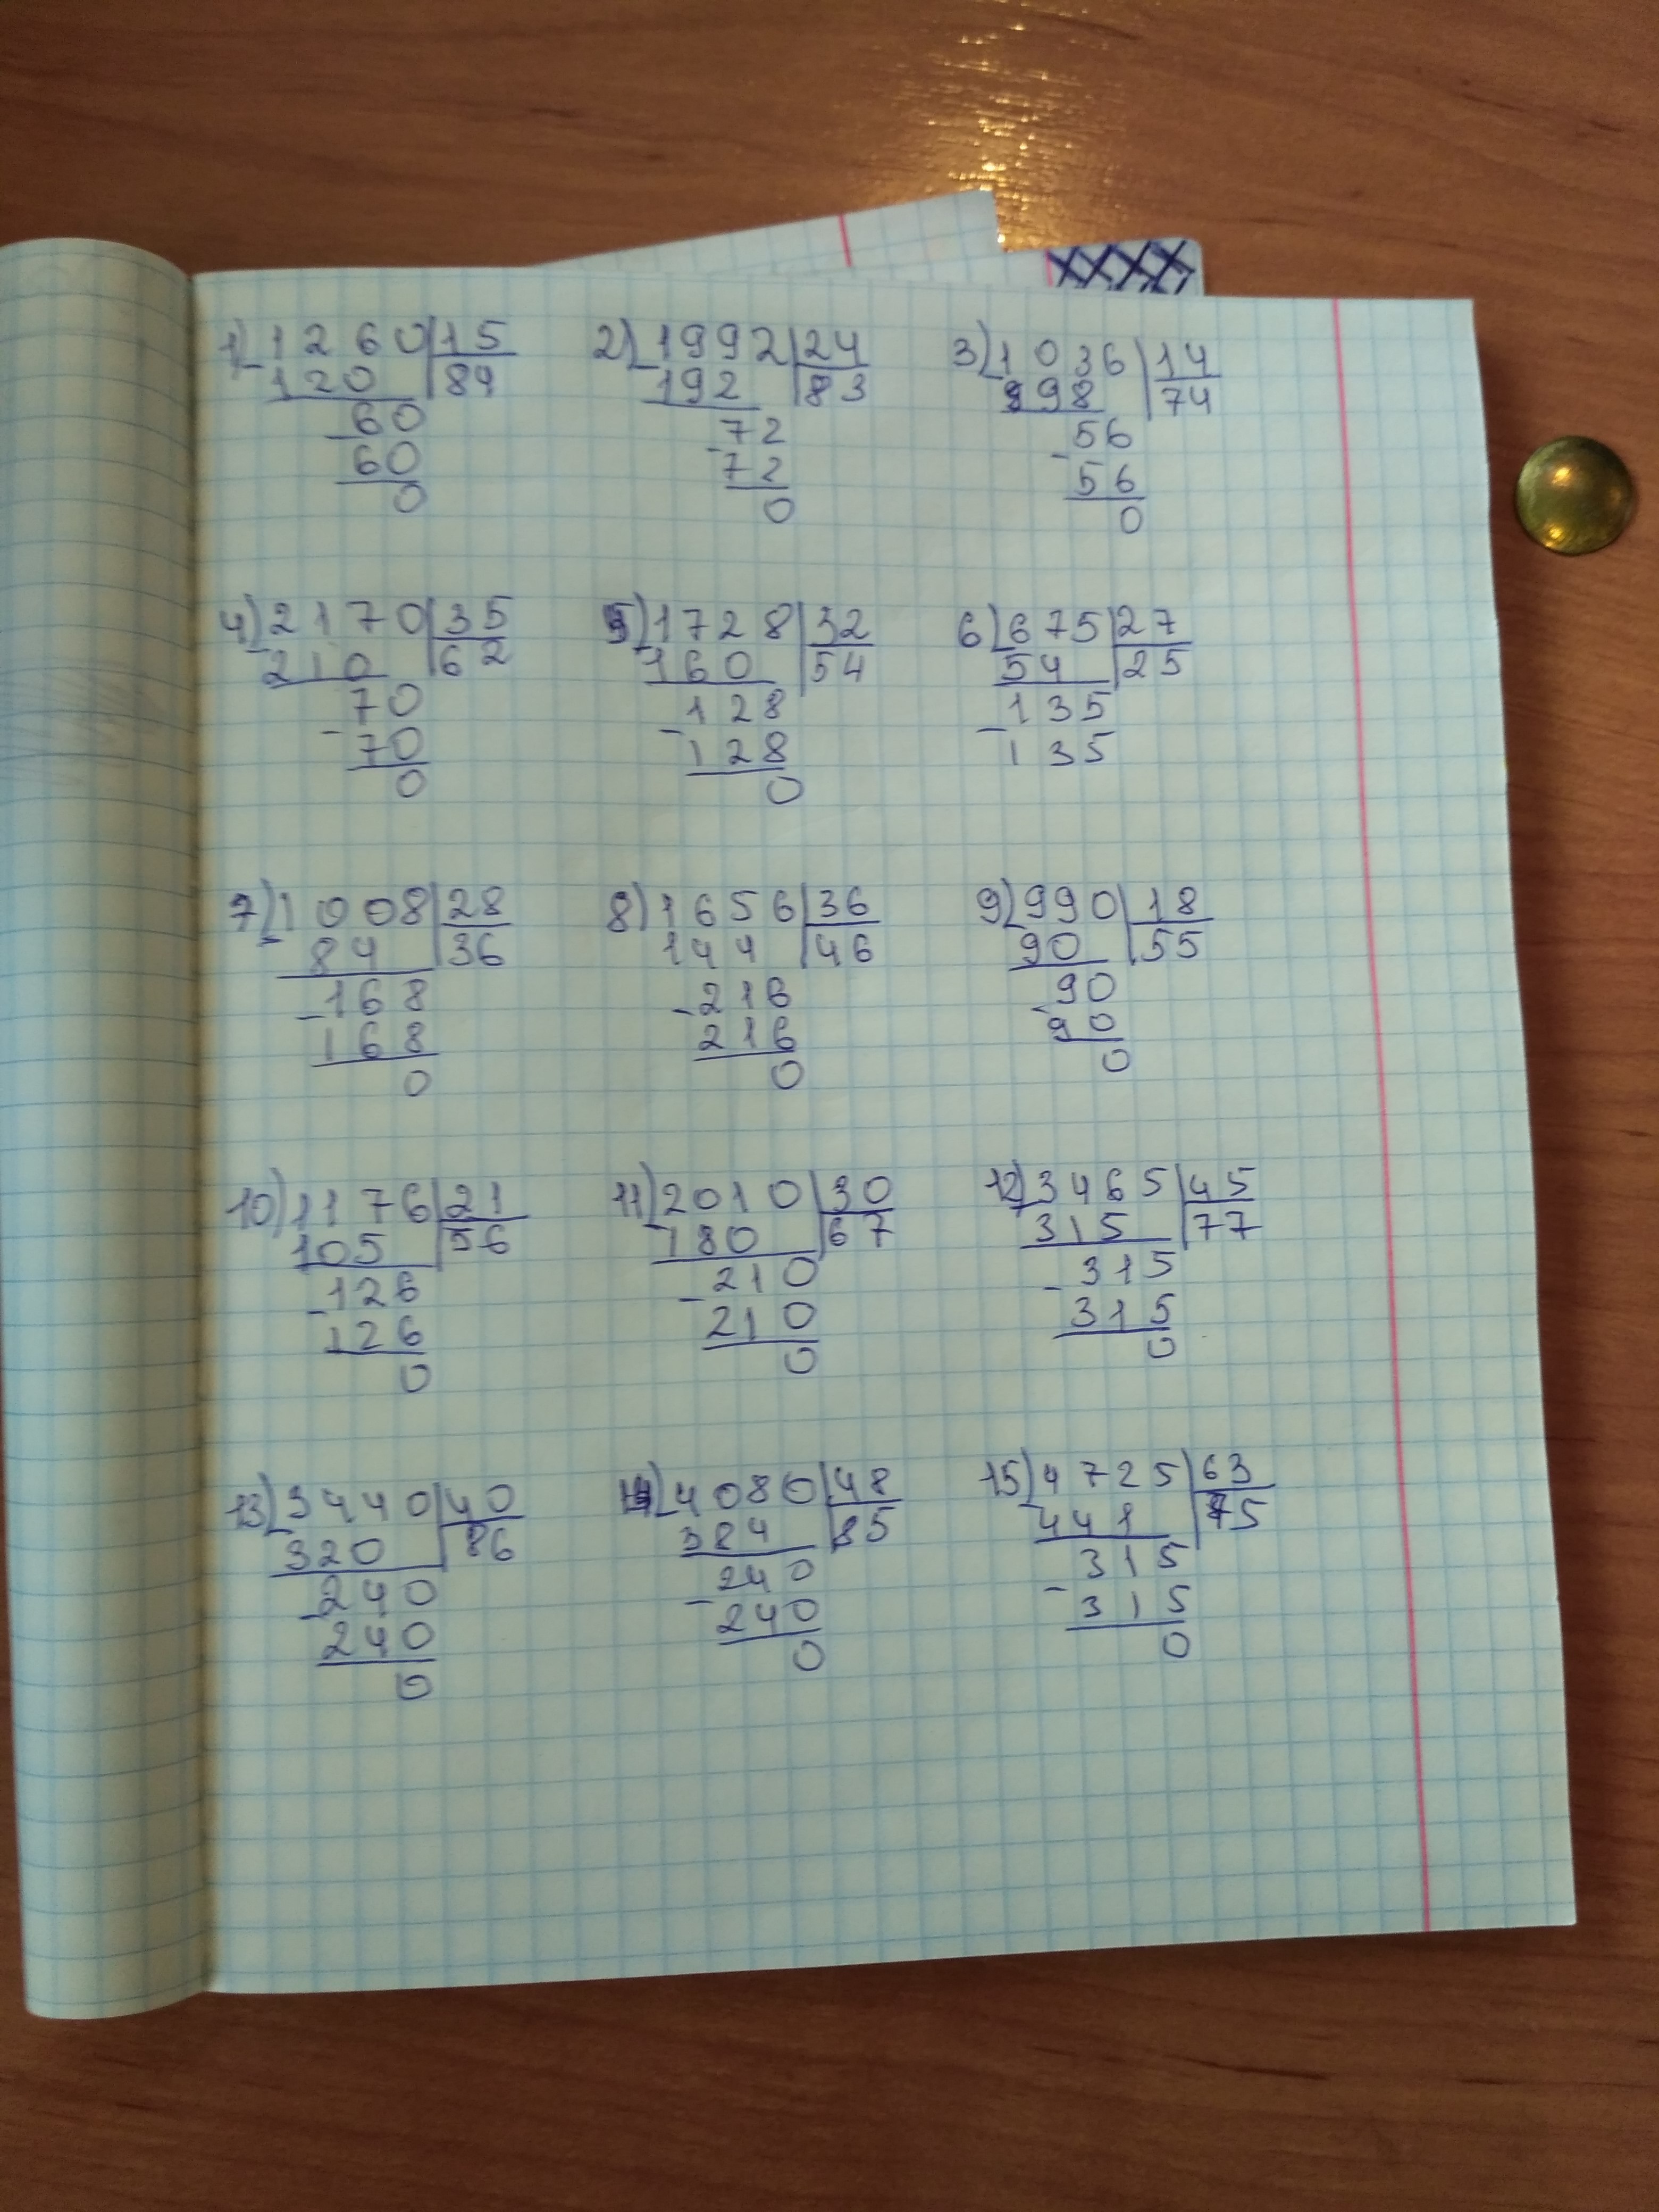 1) 1260 | 15
120 | 84
60
60
0
2) 1992 | 24
192 | 83
72
72
0
3) 1036 | 14
98 | 74
56
56
0
4) 2170 | 35
210 | 62
70
70
0
5) 1728 | 32
160 | 54
128
128
0
6) 675 | 27
54 | 25
135
135
7) 1008 | 28
84 | 36
168
168
0
8) 1656 | 36
144 | 46
216
216
0
9) 990 | 18
90 | 55
90
90
0
10) 1176 | 21
105 | 56
126
126
0
11) 2010 | 30
180 | 67
210
210
0
12) 3465 | 45
315 | 77
315
315
0
13) 3440 | 40
320 | 86
240
240
0
14) 4080 | 48
384 | 85
240
240
0
15) 4725 | 63
441 | 75
315
315
0